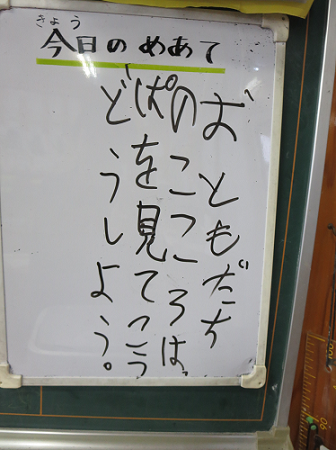 きょう
今日のめあて
おともだち
のこころは
ぱを見てこう
どうしよう。